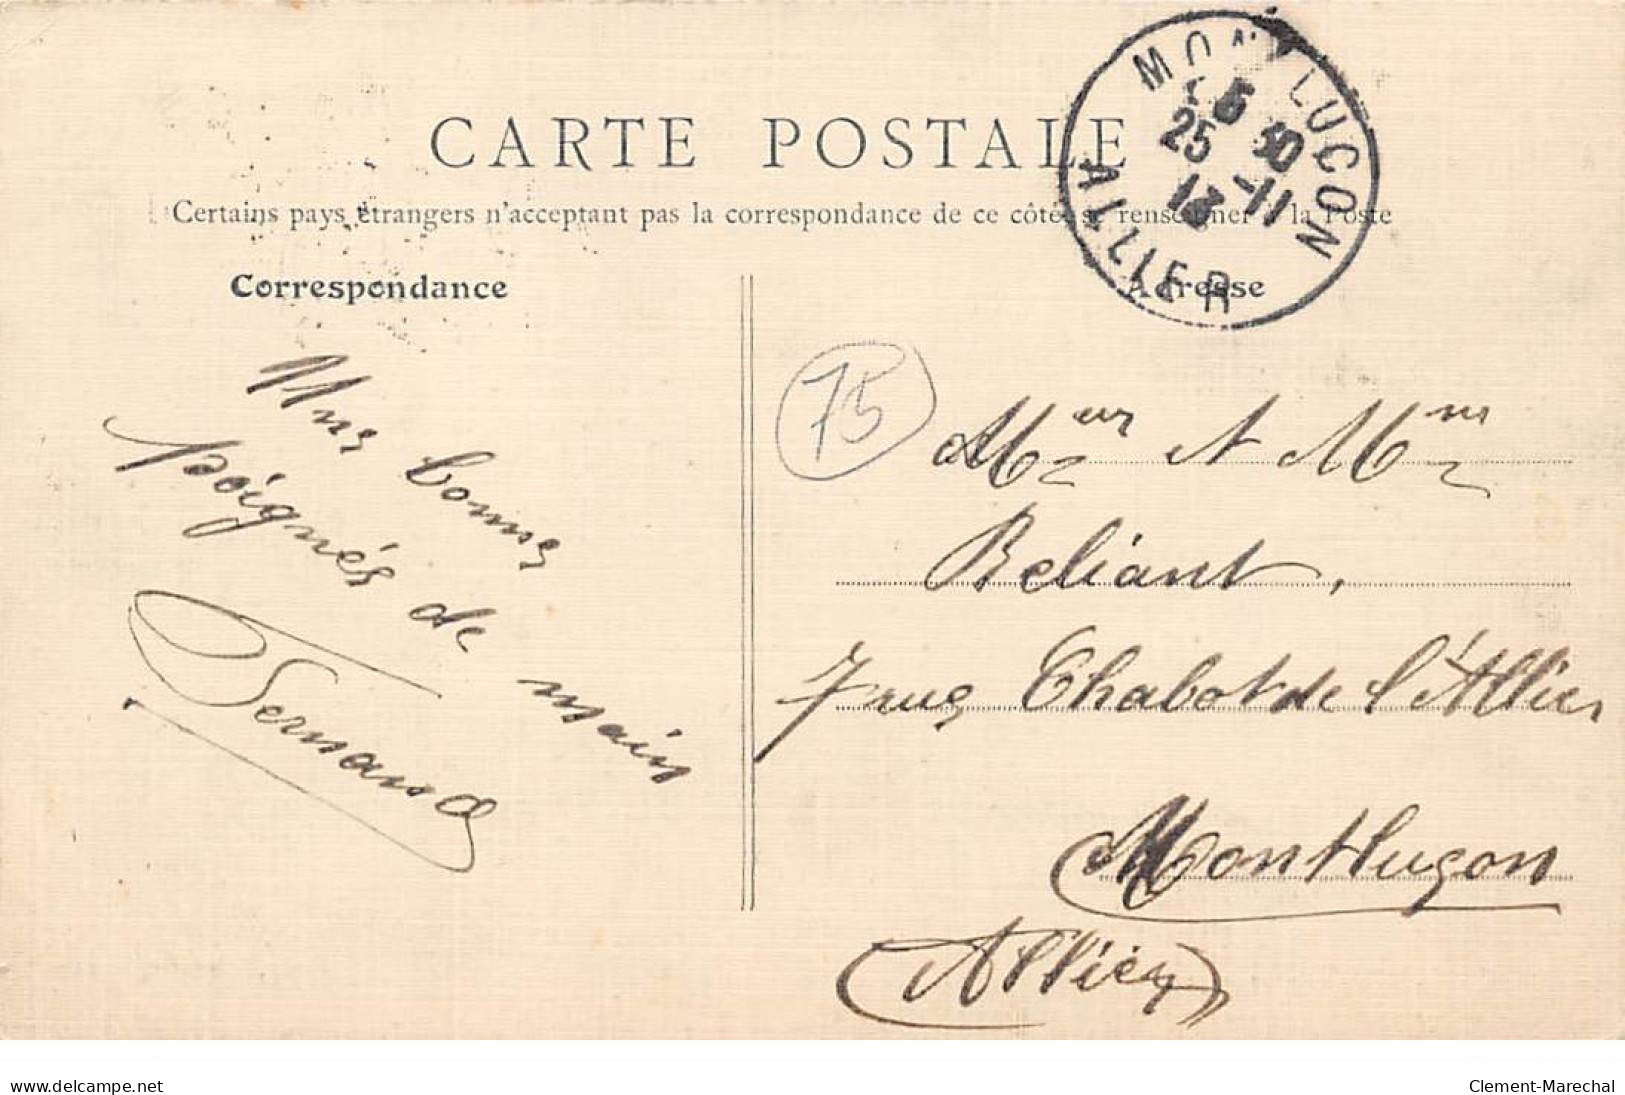 CARTE POSTALE
Certains pays étrangers n'acceptent pas la correspondance de ce côté se renseigner à la Poste
Correspondance
Adresse
MONTLUÇON
25 -11
ALLIER
75
Une bonne
poignés de main
Fernand
Meur et Mme
Beliant,
7 rue Chabot de l'Allier
Montluçon
(Allier)
www.delcampe.net
Clement-Marechal